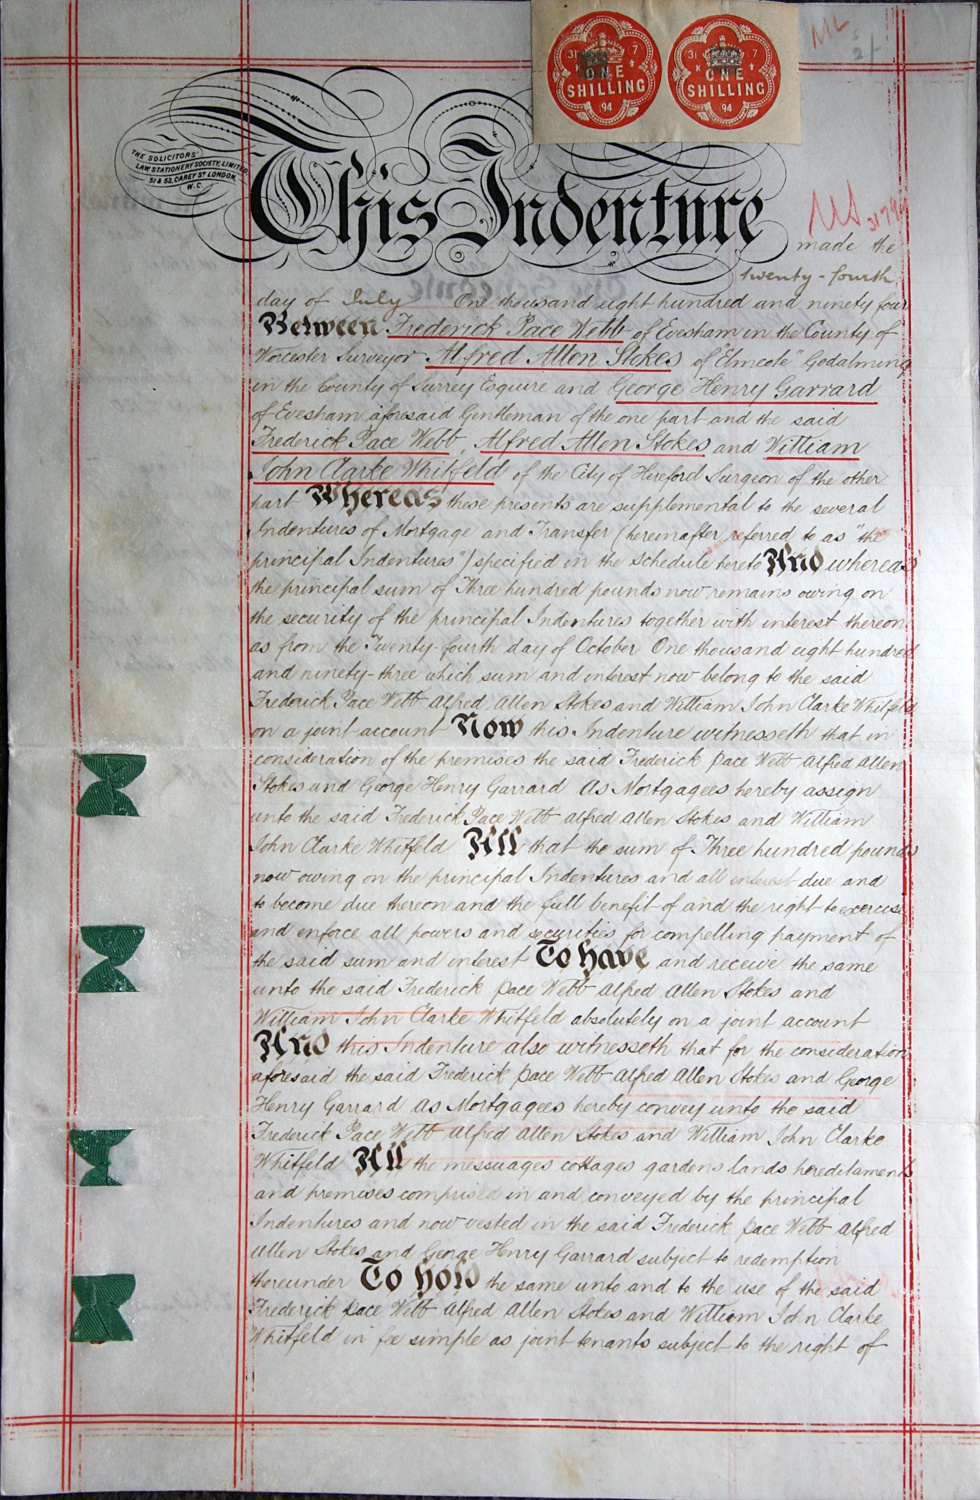 ML s
2/-
31 7
ONE
SHILLING
94
31 7
ONE
SHILLING
94
THE SOLICITORS'
LAW STATIONERY SOCIETY, LIMITED
51 & 52, CAREY ST LONDON,
W.C.
This Indenture
made the
twenty-fourth
day of July One thousand eight hundred and ninety four
Between Frederick Pace Webb of Evesham in the County of
Worcester Surveyor Alfred Allen Stokes of "Elmcote" Godalming
in the County of Surrey Esquire and George Henry Garrard
of Evesham aforesaid Gentleman of the one part and the said
Frederick Pace Webb, Alfred Allen Stokes and William
John Clarke Whitfeld of the City of Hereford Surgeon of the other
part Whereas these presents are supplemental to the several
Indentures of Mortgage and Transfer (hereinafter referred to as "the
principal Indentures") specified in the schedule hereto And whereas
the principal sum of Three hundred pounds now remains owing on
the security of the principal Indentures together with interest thereon
as from the Twenty-fourth day of October One thousand eight hundred
and ninety-three which sum and interest now belong to the said
Frederick Pace Webb Alfred Allen Stokes and William John Clarke Whitfeld
on a joint account Now this Indenture witnesseth that in
consideration of the premises the said Frederick Pace Webb Alfred Allen
Stokes and George Henry Garrard As Mortgagees hereby assign
unto the said Frederick Pace Webb Alfred Allen Stokes and William
John Clarke Whitfeld All that the sum of Three hundred pounds
now owing on the principal Indentures and all interest due and
to become due thereon and the full benefit of and the right to exercise
and enforce all powers and securities for compelling payment of
the said sum and interest To have and receive the same
unto the said Frederick Pace Webb Alfred Allen Stokes and
William John Clarke Whitfeld absolutely on a joint account
And this Indenture also witnesseth that for the consideration
aforesaid the said Frederick Pace Webb Alfred Allen Stokes and George
Henry Garrard As Mortgagees hereby convey unto the said
Frederick Pace Webb Alfred Allen Stokes and William John Clarke
Whitfeld All the messuages cottages gardens lands hereditaments
and premises comprised in and conveyed by the principal
Indentures and now vested in the said Frederick Pace Webb Alfred
Allen Stokes and George Henry Garrard subject to redemption
thereunder To hold the same unto and to the use of the said
Frederick Pace Webb Alfred Allen Stokes and William John Clarke
Whitfeld in fee simple as joint tenants subject to the right of